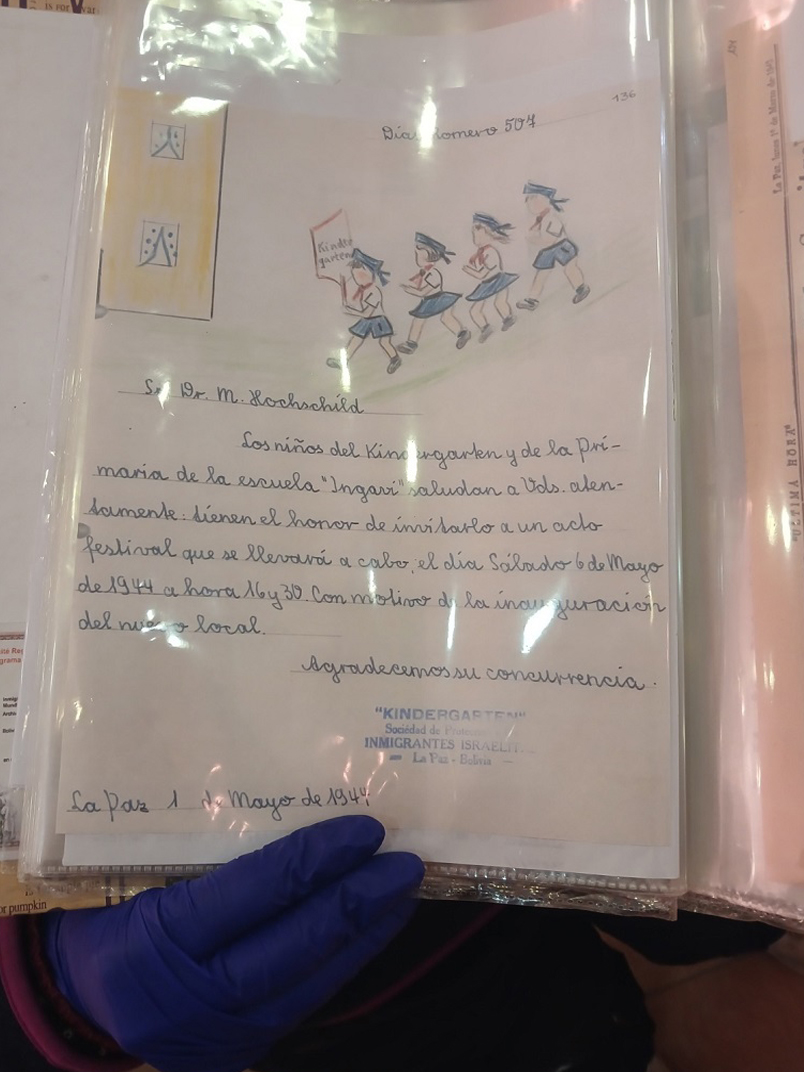 is for
136
Dias nomero 507
Kinder
garten
Sr. Dr. M. Hochschild
Los niños del Kindergarten y de la Pri-
maria de la escuela "Ingavi" saludan a Vds. aten-
tamente: tienen el honor de invitarlo a un acto
festival que se llevará a cabo, el día Sábado 6 de Mayo
de 1944 a hora 16 y 30. Con motivo de la inauguración
del nuevo local.
Agradecemos su concurrencia.
"KINDERGARTEN"
Sociedad de
INMIGRANTES ISRAELIT
La Paz - Bolivia
La Paz 1 de Mayo de 1944
La Paz, lunes 1º de Marzo de
"ULTIMA HORA"
or pumpkin